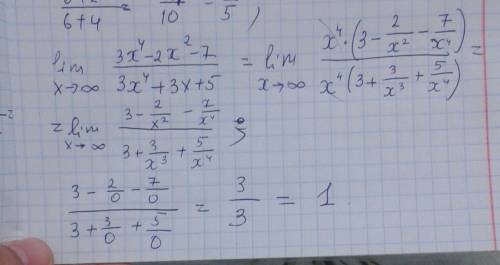 6+4 10 5 ;
lim x→∞ (3x⁴-2x²-7)/(3x⁴+3x+5) = lim x→∞ (x⁴·(3-2/x²-7/x⁴))/(x⁴(3+3/x³+5/x⁴)) =
= lim x→∞ (3-2/x²-7/x⁴)/(3+3/x³+5/x⁴) ;
(3-2/0-7/0)/(3+3/0+5/0) = 3/3 = 1